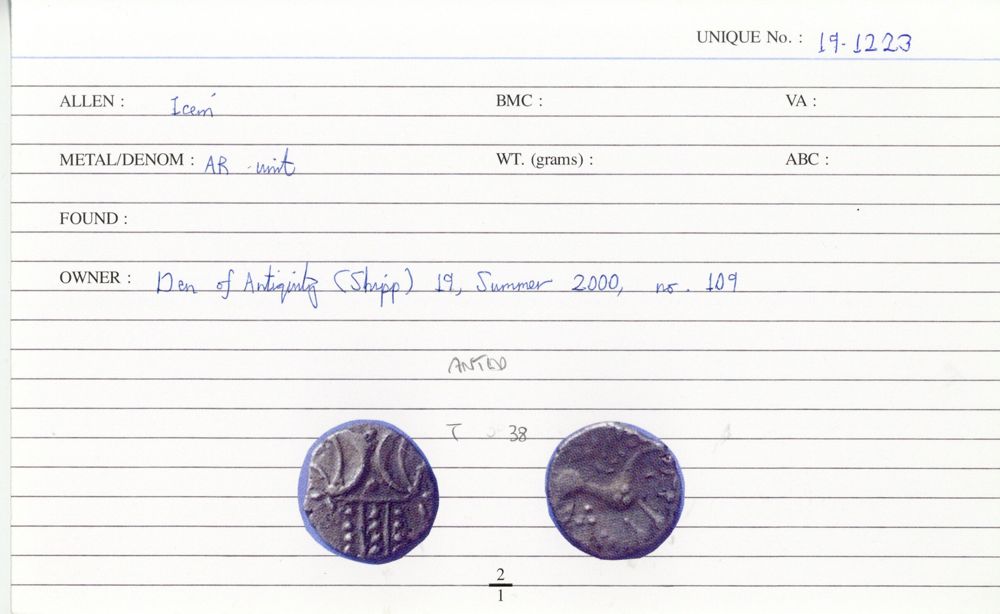 UNIQUE No. : 19-1223
ALLEN : Iceni BMC : VA :
METAL/DENOM : AR unit WT. (grams) : ABC :
FOUND :
OWNER : Den of Antiquity (Shipp) 19, Summer 2000, no. 109
ANTED
T 38
2
1